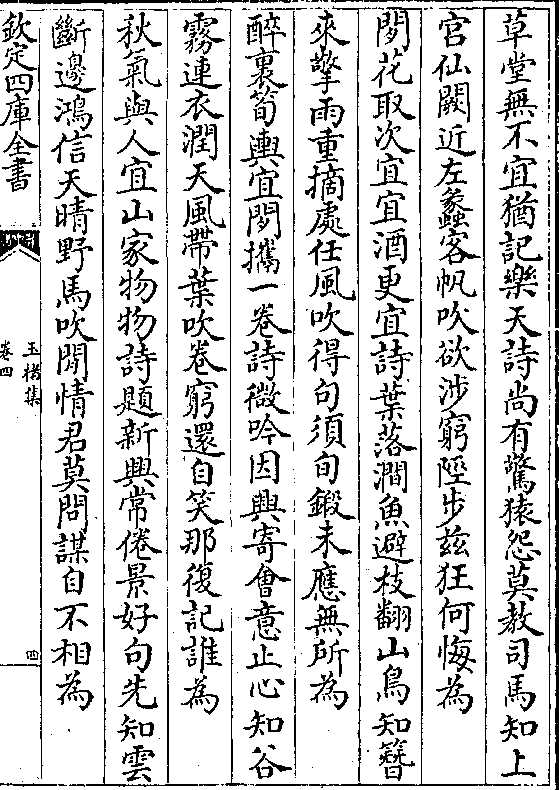 草堂無不宜猶記樂天詩尚有驚猿怨莫教司馬知上
宫仙闕近左蠡客帆吹欲涉窮陘步兹狂何悔為
閒花取次宜宜酒更宜詩葉落澗魚避枝翻山鳥知簪
來擎雨重摘處任風吹得句須旬鍛未應無所為
醉裏筍輿宜閒攜一卷詩微吟因興寄會意止心知谷
霧連衣潤天風帶葉吹卷窮還自笑那復記誰為
秋氣與人宜山家物物詩題新興常倦景好句先知雲
斷邊鴻信天晴野馬吹閒情君莫問謀自不相為
欽定四庫全書
玉楮集
卷四
四